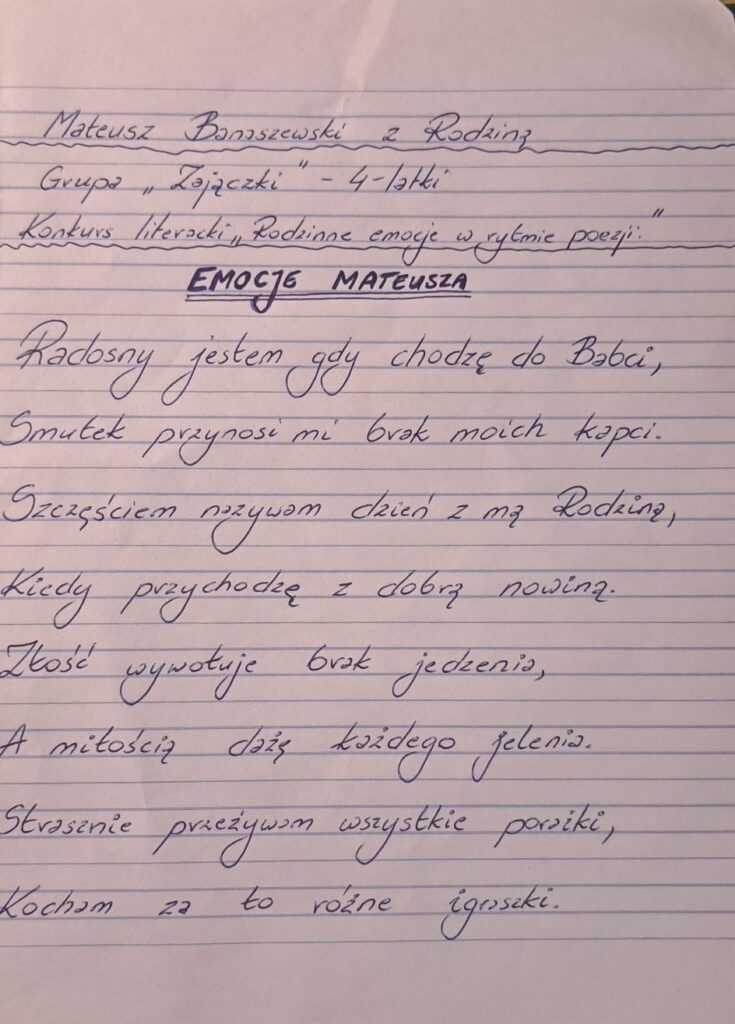 Mateusz Banaszewski z Rodziną
Grupa „Zajączki" - 4-latki
Konkurs literacki „Rodzinne emocje w rytmie poezji."
EMOCJE MATEUSZA
Radosny jestem gdy chodzę do Babci,
Smutek przynosi mi brak moich kapci.
Szczęściem nazywam dzień z mą Rodziną,
Kiedy przychodzę z dobrą nowiną.
Złość wywołuje brak jedzenia,
A miłością dażę każdego jelenia.
Strasznie przeżywam wszystkie porażki,
Kocham za to różne igraszki.